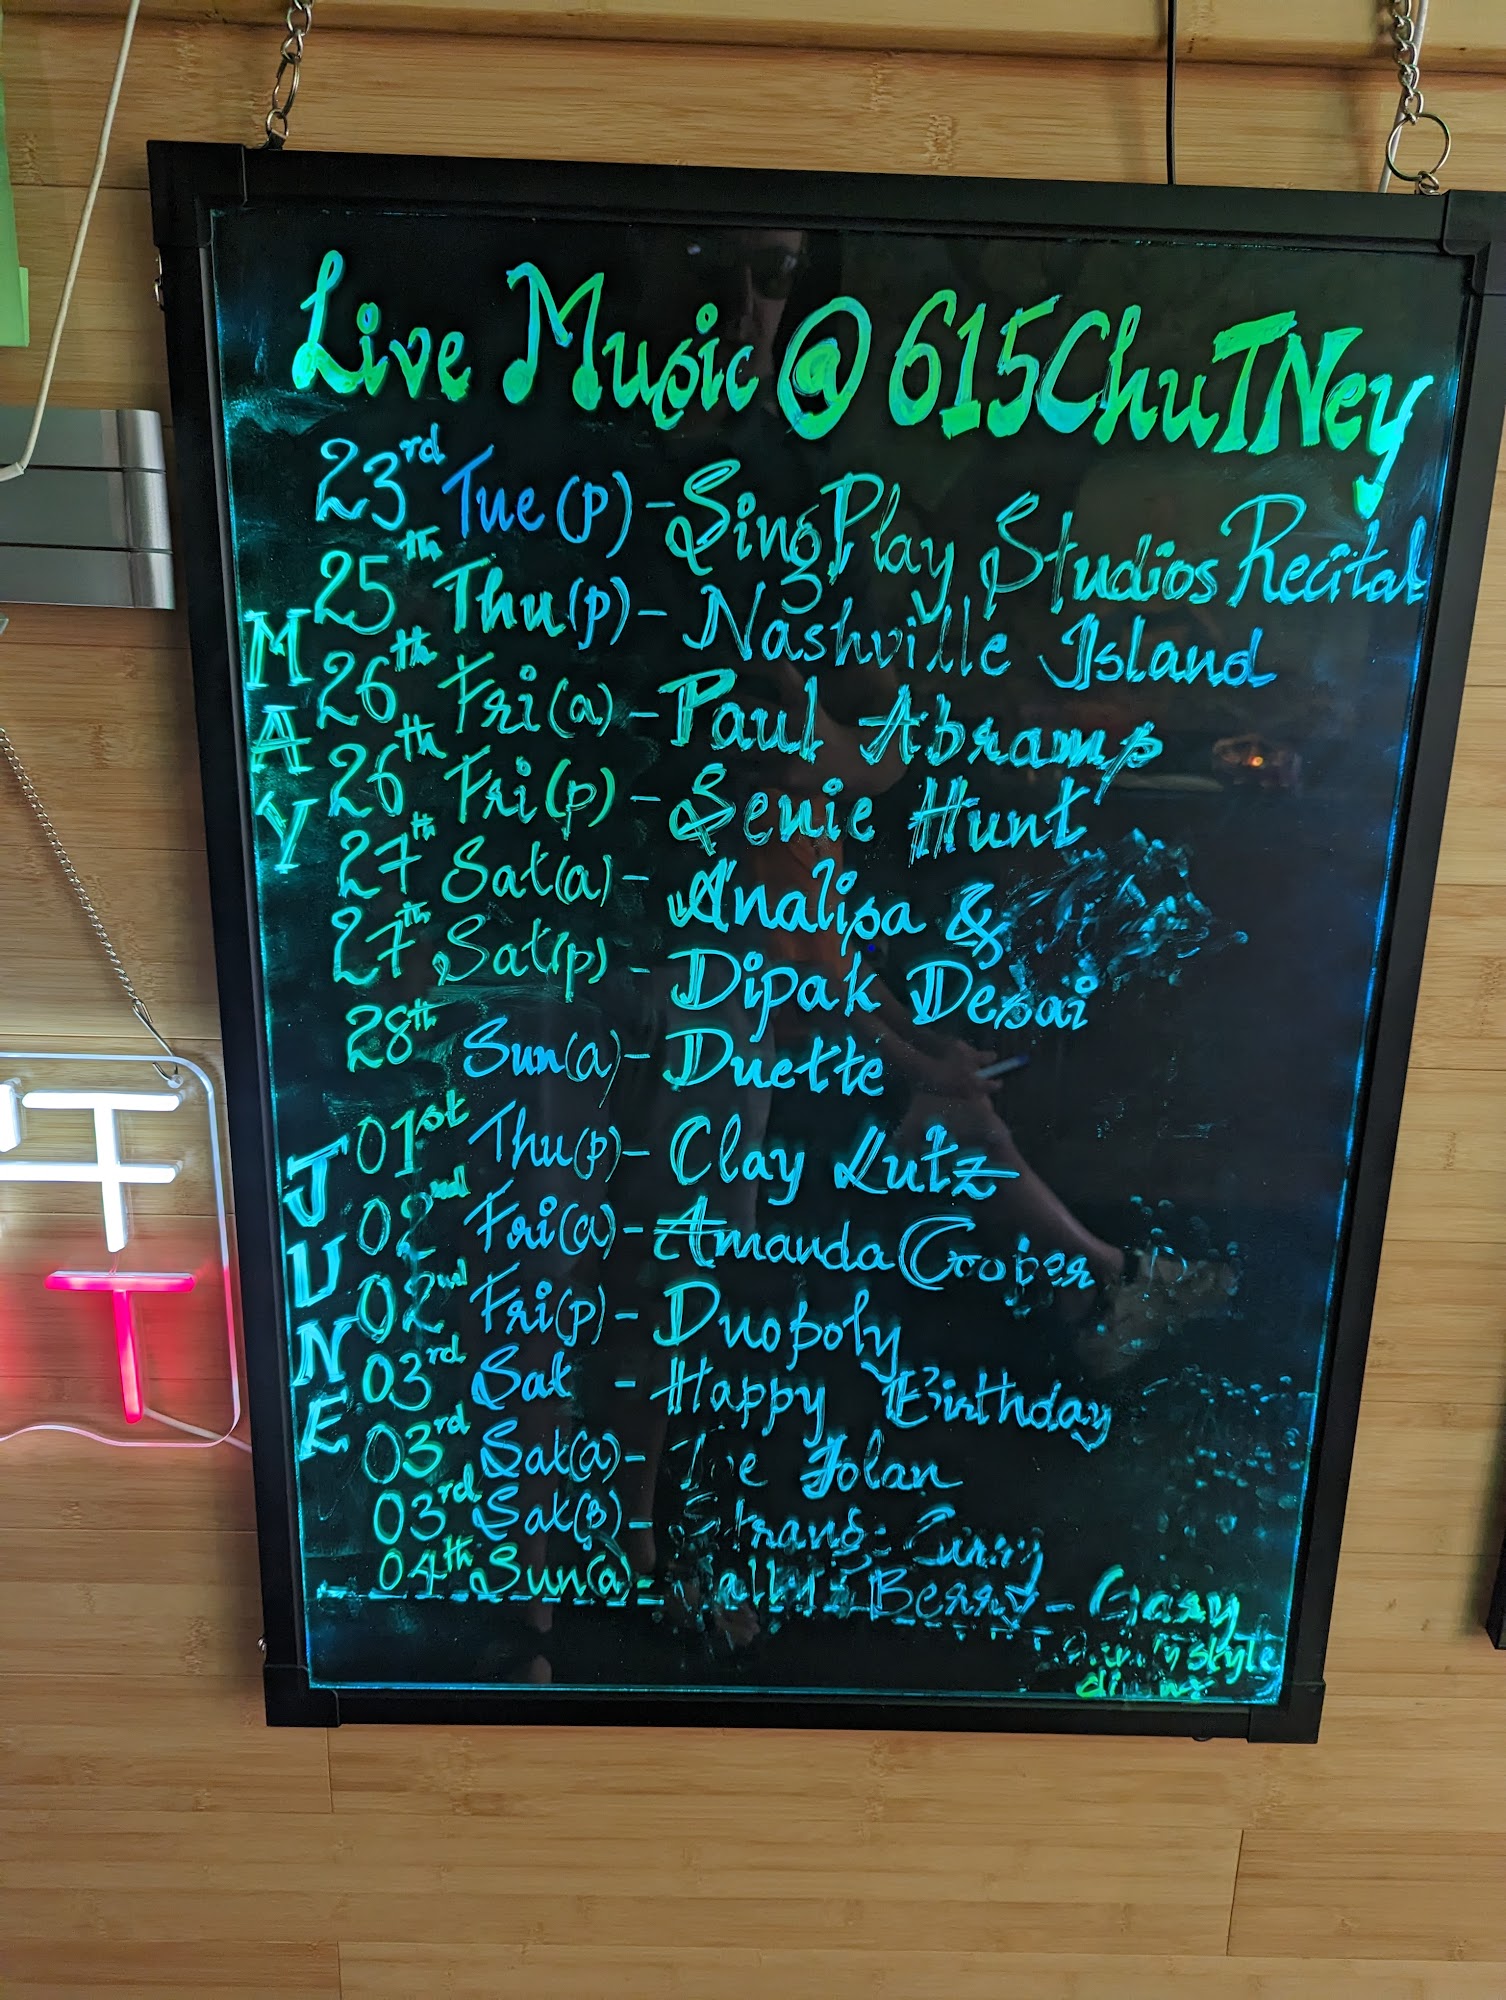 Live Music @ 615ChuTNey
23rd Tue (p) - SingPlay Studios Recital
25th Thu (p) - Nashville Island
MAY
26th Fri (a) - Paul Abramp
26th Fri (p) - Senie Hunt
27th Sat (a) - Analisa &
27th Sat (p) - Dipak Desai
28th Sun (a) - Duette
JUNE
01st Thu (p) - Clay Lutz
02nd Fri (a) - Amanda Cooper
02nd Fri (p) - Duopoly
03rd Sat - Happy Birthday
03rd Sat (a) - Folan
03rd Sat (p) - Curry
04th Sun (a) - Berry - Gary
style